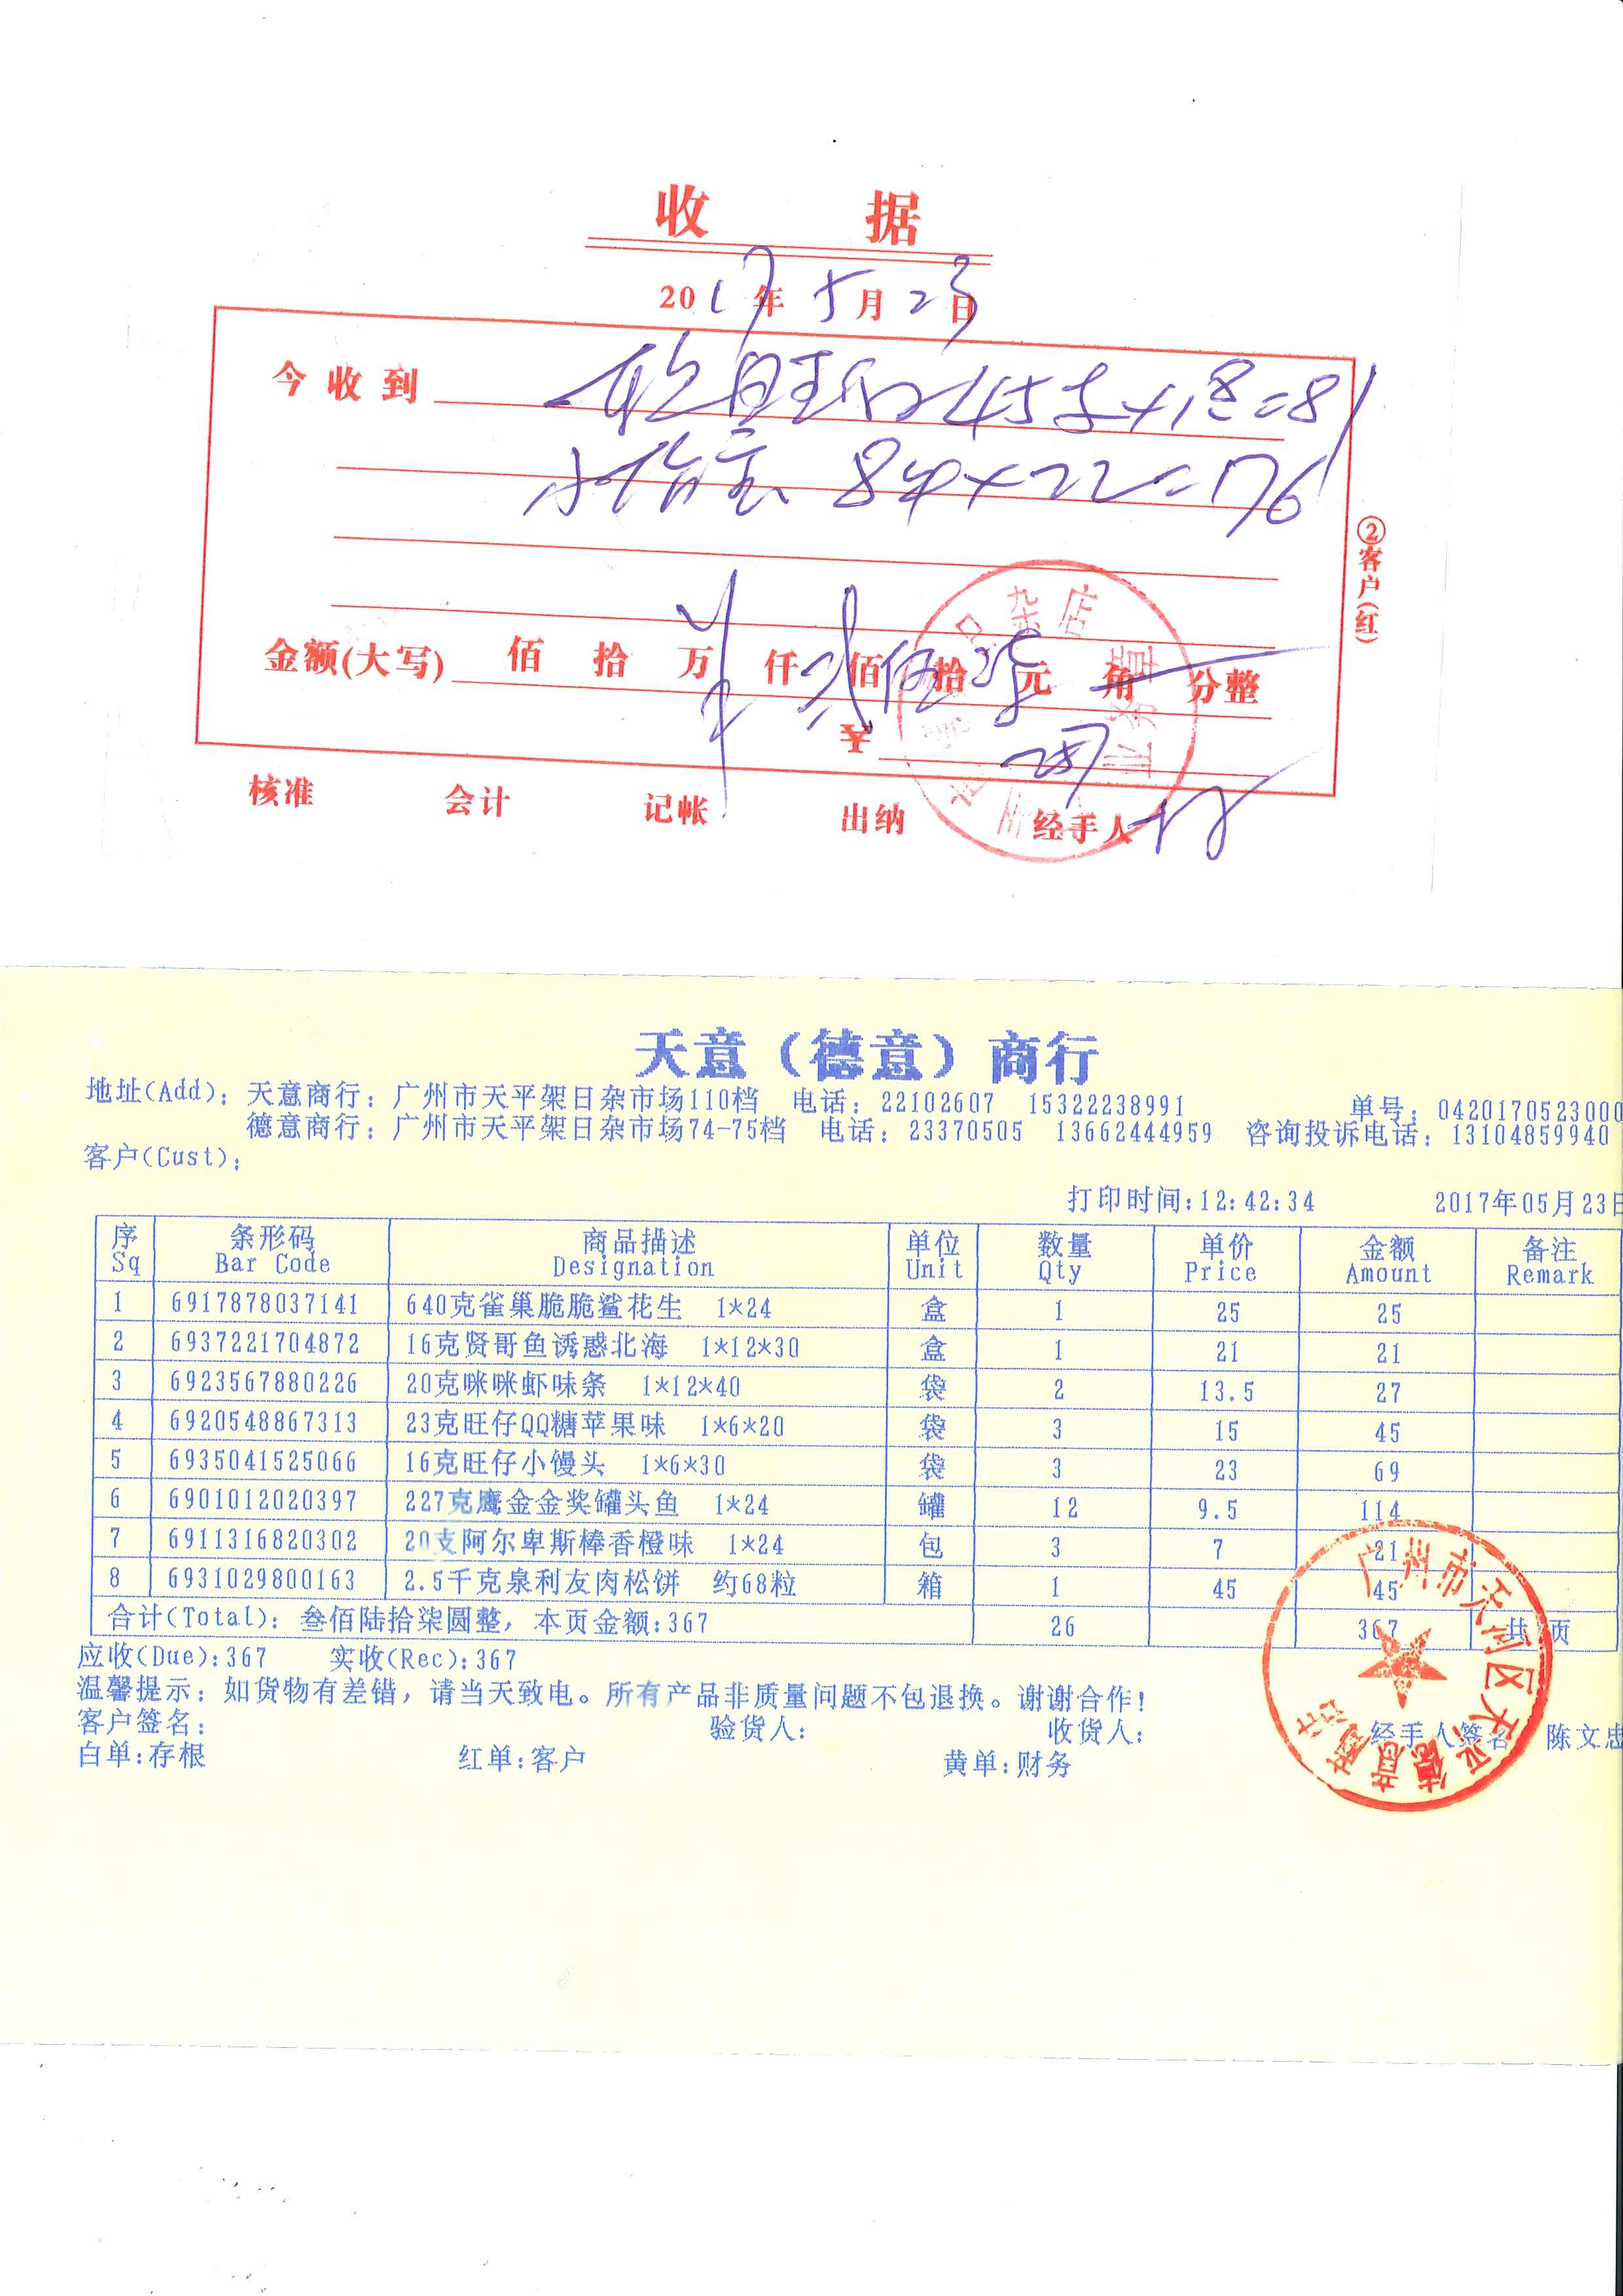 收 据
2017年5月23日
今收到
45 × 1.8 = 81
84 × 22 = 176
②客户(红)
杂店
金额(大写) 佰 拾 万 仟 贰 佰 伍 拾 柒 元 角 分整
¥ 257
业务章
核准 会计 记帐 出纳 经手人
天意（德意）商行
地址(Add): 天意商行: 广州市天平架日杂市场110档 电话: 22102607 15322238991 单号: 0420170523000
德意商行: 广州市天平架日杂市场74-75档 电话: 23370505 13662444959 咨询投诉电话: 13104859940
客户(Cust):
打印时间:12:42:34 2017年05月23日
序 条形码 商品描述 单位 数量 单价 金额 备注
Sq Bar Code Designation Unit Qty Price Amount Remark
1 6917878037141 640克雀巢脆脆鲨花生 1*24 盒 1 25 25
2 6937221704872 16克贤哥鱼诱惑北海 1*12*30 盒 1 21 21
3 6923567880226 20克咪咪虾味条 1*12*40 袋 2 13.5 27
4 6920548867313 23克旺仔QQ糖苹果味 1*6*20 袋 3 15 45
5 6935041525066 16克旺仔小馒头 1*6*30 袋 3 23 69
6 6901012020397 227克鹰金金奖罐头鱼 1*24 罐 12 9.5 114
7 6911316820302 20支阿尔卑斯棒香橙味 1*24 包 3 7 21
8 6931029800163 2.5千克泉利友肉松饼 约68粒 箱 1 45 45
合计(Total): 叁佰陆拾柒圆整, 本页金额:367 26 367 共 页
应收(Due):367 实收(Rec):367
温馨提示: 如货物有差错, 请当天致电。所有产品非质量问题不包退换。谢谢合作!
客户签名: 验货人: 收货人: 经手人签名 陈文忠
白单:存根 红单:客户 黄单:财务
广州市天河区天平德意商店